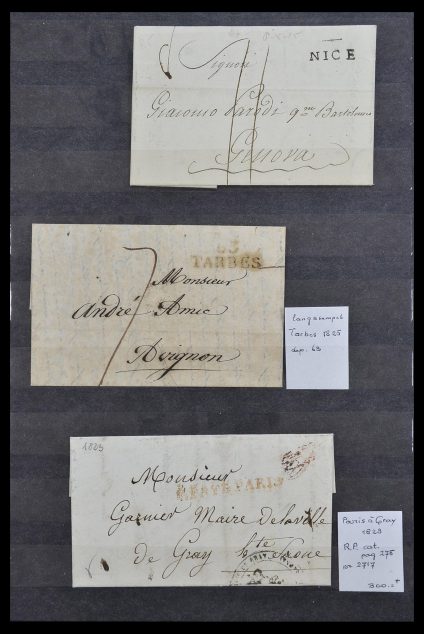 NICE
Signori
Giacomo Parodi q.m Bartolomeo
Genova
TARBES
7
Monsieur
André Amic
Avignon
langstempel
Tarbes 1825
dep. 63
1823
Monsieur
Garnier Maire de la ville
de Gray hte Saone
Paris à Gray
1823
R.P. cat.
pag 278
nr 2717